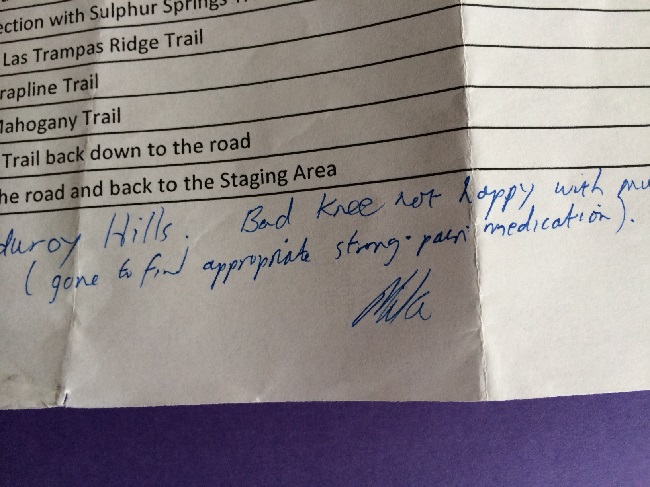 ection with Sulphur Springs T
Las Trampas Ridge Trail
rapline Trail
Mahogany Trail
Trail back down to the road
he road and back to the Staging Area
duroy Hills. Bad knee not happy with
(gone to find appropriate strong pain medication).